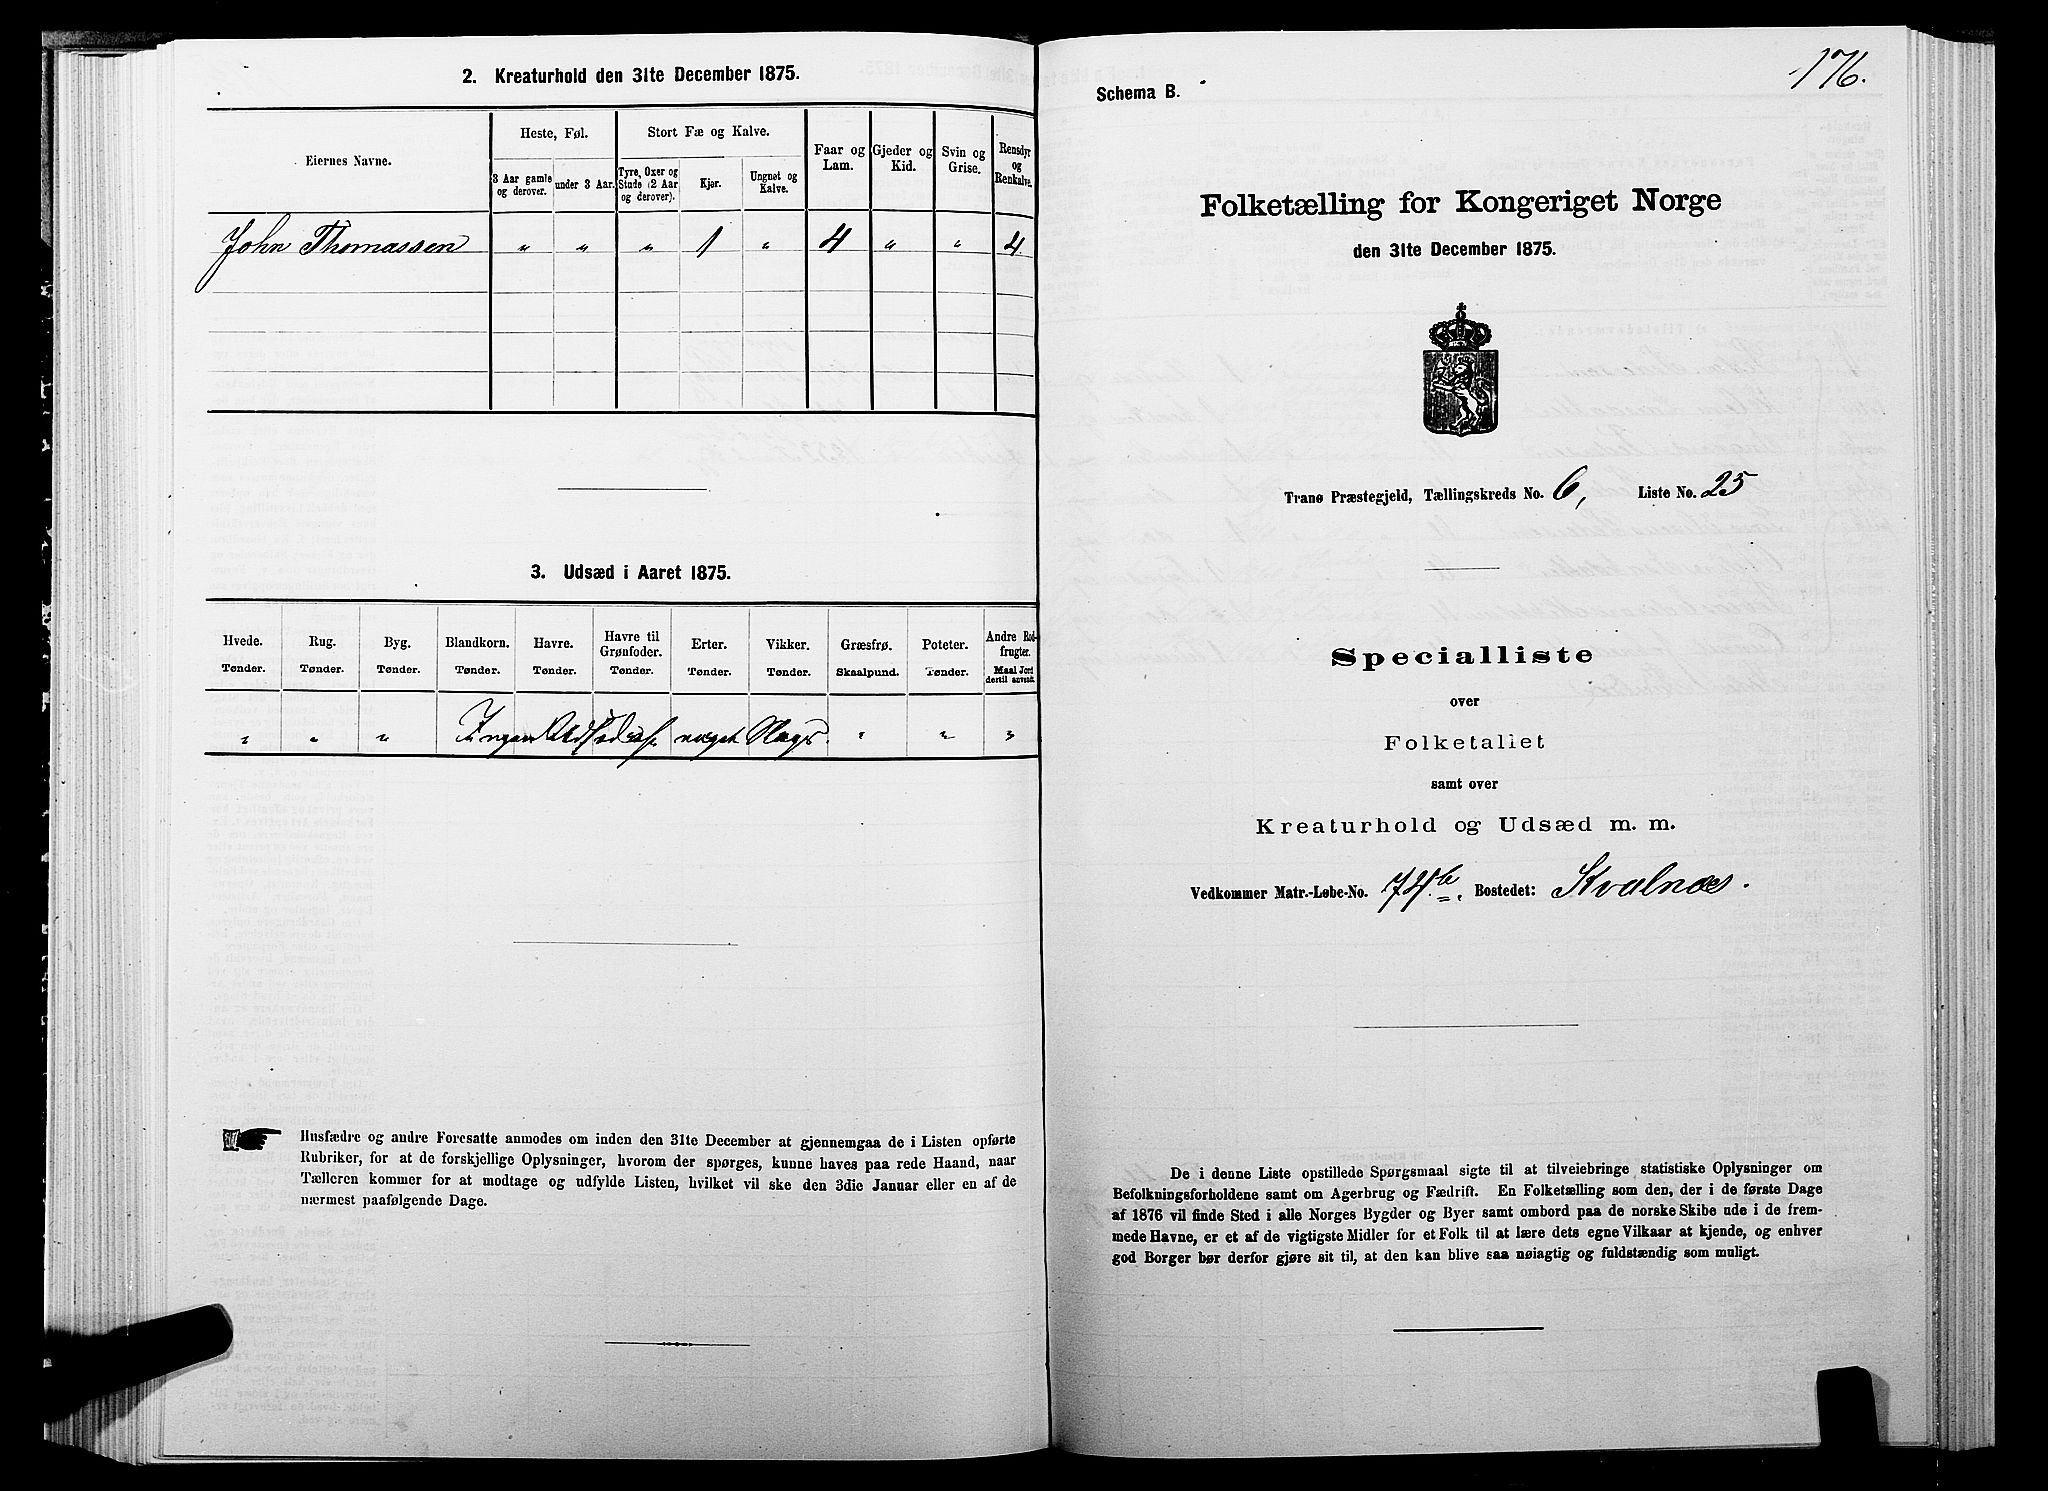 2. Kreaturhold den 31te December 1875.
Eiernes Navne.
Heste, Føl.
Stort Fæ og Kalve.
Faar og Lam.
Gjeder og Kid.
Svin og Grise.
Rensdyr og Renkalve.
3 Aar gamle og derover.
under 3 Aar.
Tyre, Oxer og Stude (2 Aar og derover).
Kjør.
Ungnøt og Kalve.
John Thomassen " " " 1 " 4 " " 4
3. Udsæd i Aaret 1875.
Hvede. Rug. Byg. Blandkorn. Havre. Havre til Grønfoder. Erter. Vikker. Græsfrø. Poteter. Andre Rodfrugter.
Tønder. Tønder. Tønder. Tønder. Tønder. Tønder. Tønder. Tønder. Skaalpund. Tønder. Maal Jord dertil anvendt.
" " " Ingen Udsæd af noget Slags. " " "
Husfædre og andre Foresatte anmodes om inden den 31te December at gjennemgaa de i Listen opførte
Rubriker, for at de forskjellige Oplysninger, hvorom der spørges, kunne haves paa rede Haand, naar
Tælleren kommer for at modtage og udfylde Listen, hvilket vil ske den 3die Januar eller en af de
nærmest paafølgende Dage.
176.
Schema B.
Folketælling for Kongeriget Norge
den 31te December 1875.
Tranø Præstegjeld, Tællingskreds No. 6, Liste No. 25
Specialliste
over
Folketallet
samt over
Kreaturhold og Udsæd m. m.
Vedkommer Matr.-Løbe-No. 74.b, Bostedet: Kvalnæs.
De i denne Liste opstillede Spørgsmaal sigte til at tilveiebringe statistiske Oplysninger om
Befolkningsforholdene samt om Agerbrug og Fædrift. En Folketælling som den, der i de første Dage
af 1876 vil finde Sted i alle Norges Bygder og Byer samt ombord paa de norske Skibe ude i de frem-
mede Havne, er et af de vigtigste Midler for et Folk til at lære dets egne Vilkaar at kjende, og enhver
god Borger bør derfor gjøre sit til, at den kan blive saa nøiagtig og fuldstændig som muligt.